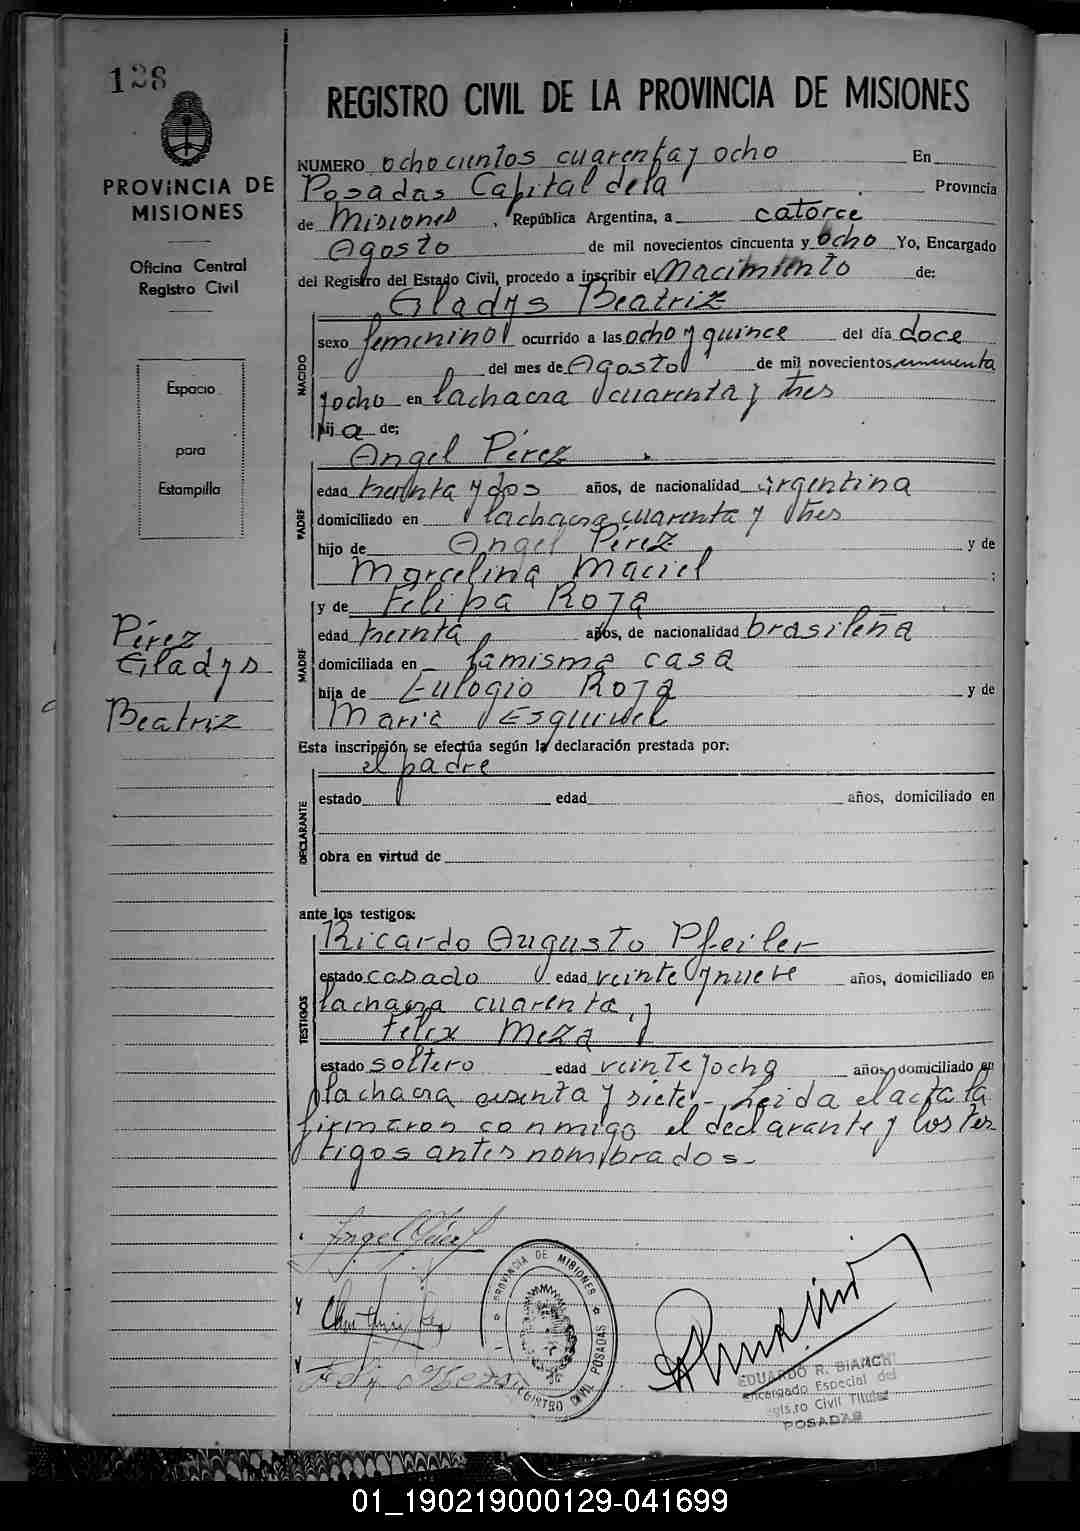 128
PROVINCIA DE
MISIONES
Oficina Central
Registro Civil
Espacio
para
Estampilla
Pérez
Gladys
Beatriz
REGISTRO CIVIL DE LA PROVINCIA DE MISIONES
NUMERO ochocientos cuarenta y ocho En
Posadas Capital de la Provincia
de Misiones, República Argentina, a catorce
Agosto de mil novecientos cincuenta y ocho Yo, Encargado
del Registro del Estado Civil, procedo a inscribir el Nacimiento de:
Gladys Beatriz
NACIDO
sexo femenino ocurrido a las ocho y quince del día doce
del mes de Agosto de mil novecientos cincuenta
y ocho en la chacra cuarenta y tres
hij a de;
Angel Pérez
PADRE
edad treinta y dos años, de nacionalidad argentina
domiciliado en la chacra cuarenta y tres
hijo de Angel Pérez y de
Marcelina Maciel ;
y de Felipa Roja
MADRE
edad treinta años, de nacionalidad brasileña
domiciliada en la misma casa
hija de Eulogio Roja y de
Maria Esquivel
Esta inscripción se efectúa según la declaración prestada por:
el padre
DECLARANTE
estado edad años, domiciliado en
obra en virtud de
ante los testigos:
Ricardo Augusto Pfeiler
TESTIGOS
estado casado edad veinte y nueve años, domiciliado en
la chacra cuarenta, y
Felix Meza
estado soltero edad veinte y ocho años, domiciliado en
la chacra sesenta y siete - Leida el acta la
firmaron conmigo el declarante y los tes
tigos antes nombrados.-
Angel Pérez
Felix Meza
PROVINCIA DE MISIONES
REGISTRO CIVIL POSADAS
EDUARDO R. BIANCHI
Encargado Especial del
Registro Civil Titular
POSADAS
01_190219000129-041699